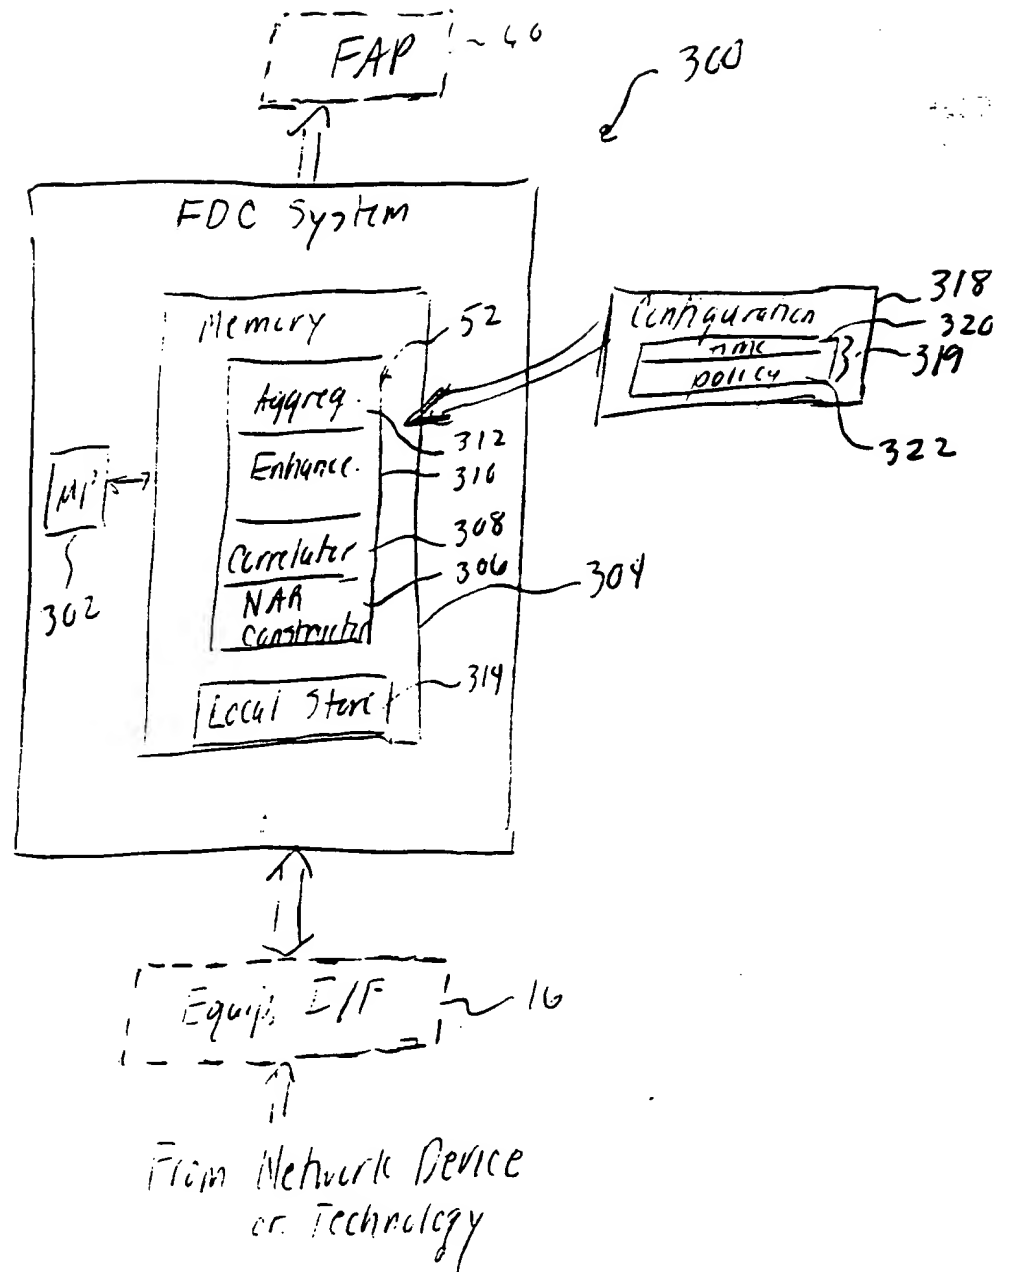 FAP
60
300
FDC System
Memory
52
Aggreg.
312
Enhance.
310
Correlator
308
NAR
306
Constructor
304
Local Store
314
µP
302
Configuration
318
320
319
policy
322
Equip. I/F
16
From Network Device
or Technology